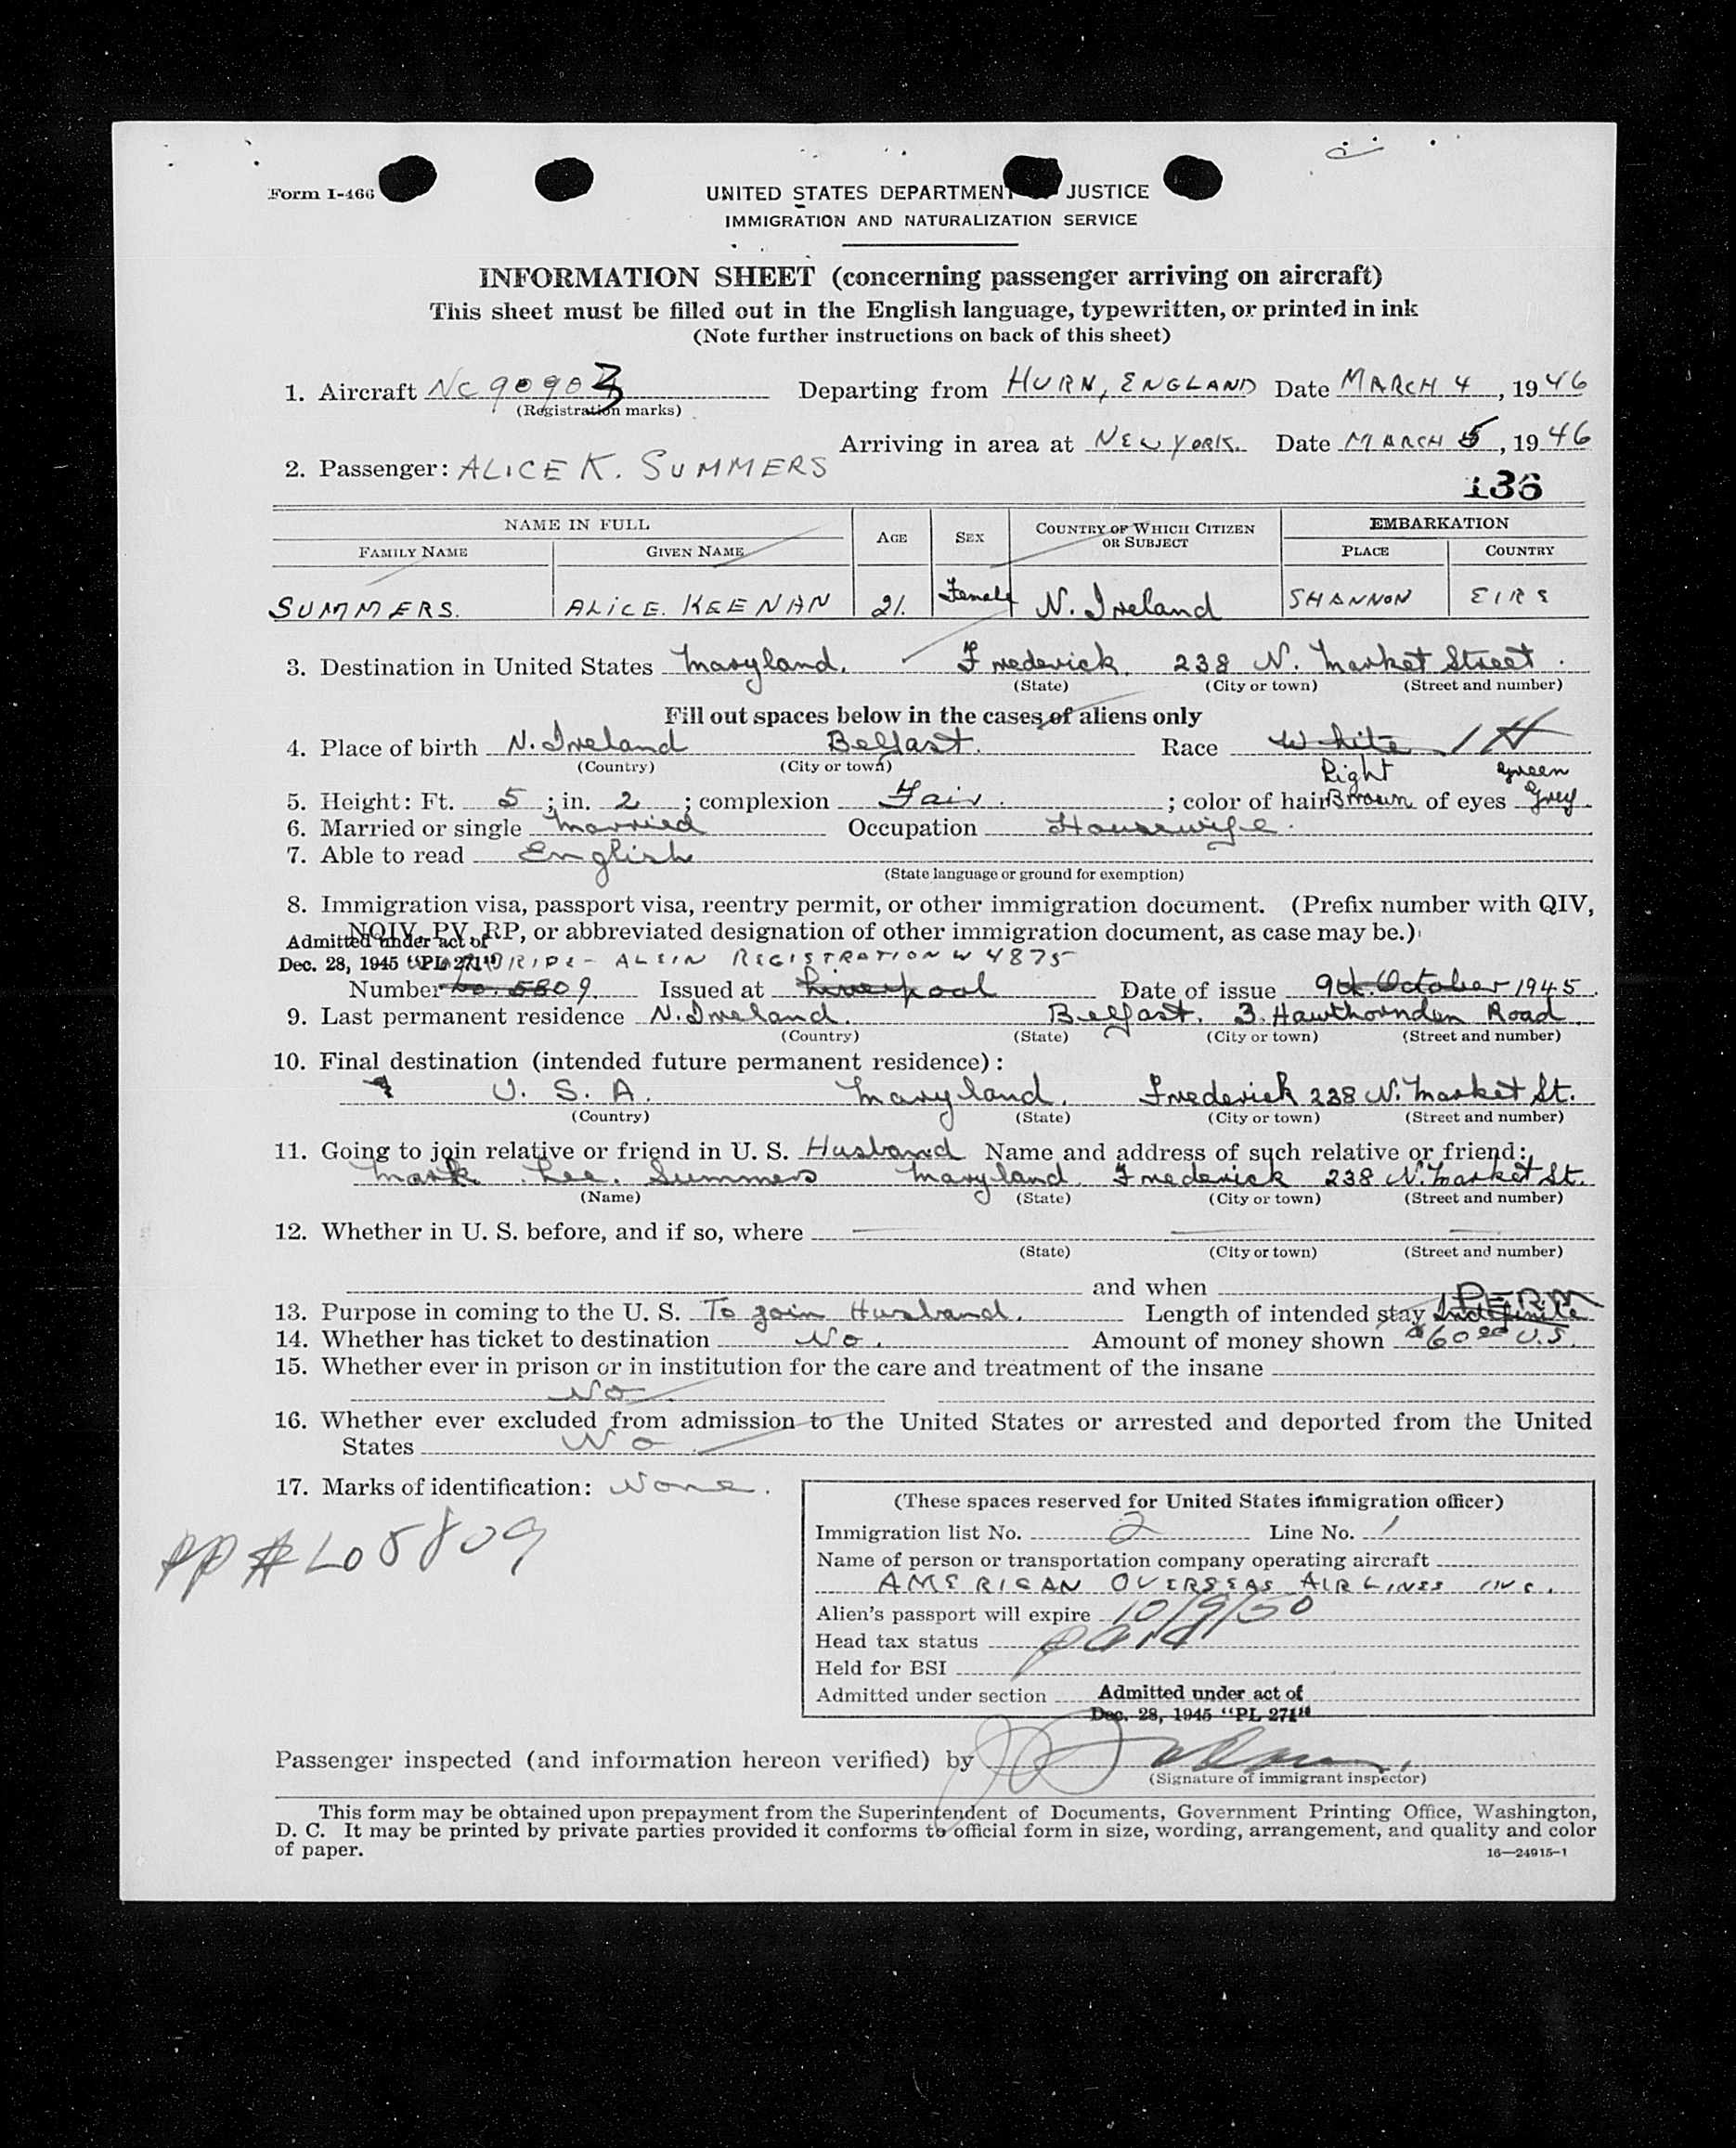 Form I-466
UNITED STATES DEPARTMENT JUSTICE
IMMIGRATION AND NATURALIZATION SERVICE
INFORMATION SHEET (concerning passenger arriving on aircraft)
This sheet must be filled out in the English language, typewritten, or printed in ink
(Note further instructions on back of this sheet)
1. Aircraft NC 90903 Departing from HURN, ENGLAND Date MARCH 4, 1946
(Registration marks)
Arriving in area at NEW YORK. Date MARCH 5, 1946
2. Passenger: ALICE K. SUMMERS
136
NAME IN FULL AGE SEX COUNTRY OF WHICH CITIZEN OR SUBJECT EMBARKATION
FAMILY NAME GIVEN NAME PLACE COUNTRY
SUMMERS. ALICE. KEENAN 21. Female N. Ireland SHANNON EIRE
3. Destination in United States Maryland. Frederick. 238 N. Market Street.
(State) (City or town) (Street and number)
Fill out spaces below in the cases of aliens only
4. Place of birth N. Ireland Belfast. Race White
(Country) (City or town)
Light green
5. Height: Ft. 5; in. 2; complexion Fair.; color of hair Brown of eyes Grey
6. Married or single Married Occupation Housewife.
7. Able to read English
(State language or ground for exemption)
8. Immigration visa, passport visa, reentry permit, or other immigration document. (Prefix number with QIV,
NQIV, PV, RP, or abbreviated designation of other immigration document, as case may be.)
Admitted under act of
Dec. 28, 1945 "PL 271" ALEIN REGISTRATION W 4875
Number Lo. 5809. Issued at Liverpool Date of issue 9th. October 1945.
9. Last permanent residence N. Ireland. Belfast. 3. Hawthornden Road
(Country) (State) (City or town) (Street and number)
10. Final destination (intended future permanent residence):
U. S. A. Maryland. Frederick 238 N. Market St.
(Country) (State) (City or town) (Street and number)
11. Going to join relative or friend in U. S. Husband Name and address of such relative or friend:
Mark. Lee. Summers Maryland. Frederick 238 N. Market St.
(Name) (State) (City or town) (Street and number)
12. Whether in U. S. before, and if so, where
(State) (City or town) (Street and number)
and when
13. Purpose in coming to the U. S. To join Husband. Length of intended stay Indefinite PERM
14. Whether has ticket to destination No. Amount of money shown $60.00 U.S.
15. Whether ever in prison or in institution for the care and treatment of the insane
No.
16. Whether ever excluded from admission to the United States or arrested and deported from the United
States No.
17. Marks of identification: None.
PP # Lo 5809
(These spaces reserved for United States immigration officer)
Immigration list No. 2 Line No. 1
Name of person or transportation company operating aircraft
AMERICAN OVERSEAS AIRLINES INC.
Alien's passport will expire 10/9/50
Head tax status paid
Held for BSI
Admitted under section Admitted under act of
Dec. 28, 1945 "PL 271"
Passenger inspected (and information hereon verified) by
(Signature of immigrant inspector)
This form may be obtained upon prepayment from the Superintendent of Documents, Government Printing Office, Washington,
D. C. It may be printed by private parties provided it conforms to official form in size, wording, arrangement, and quality and color
of paper.
16—24915-1